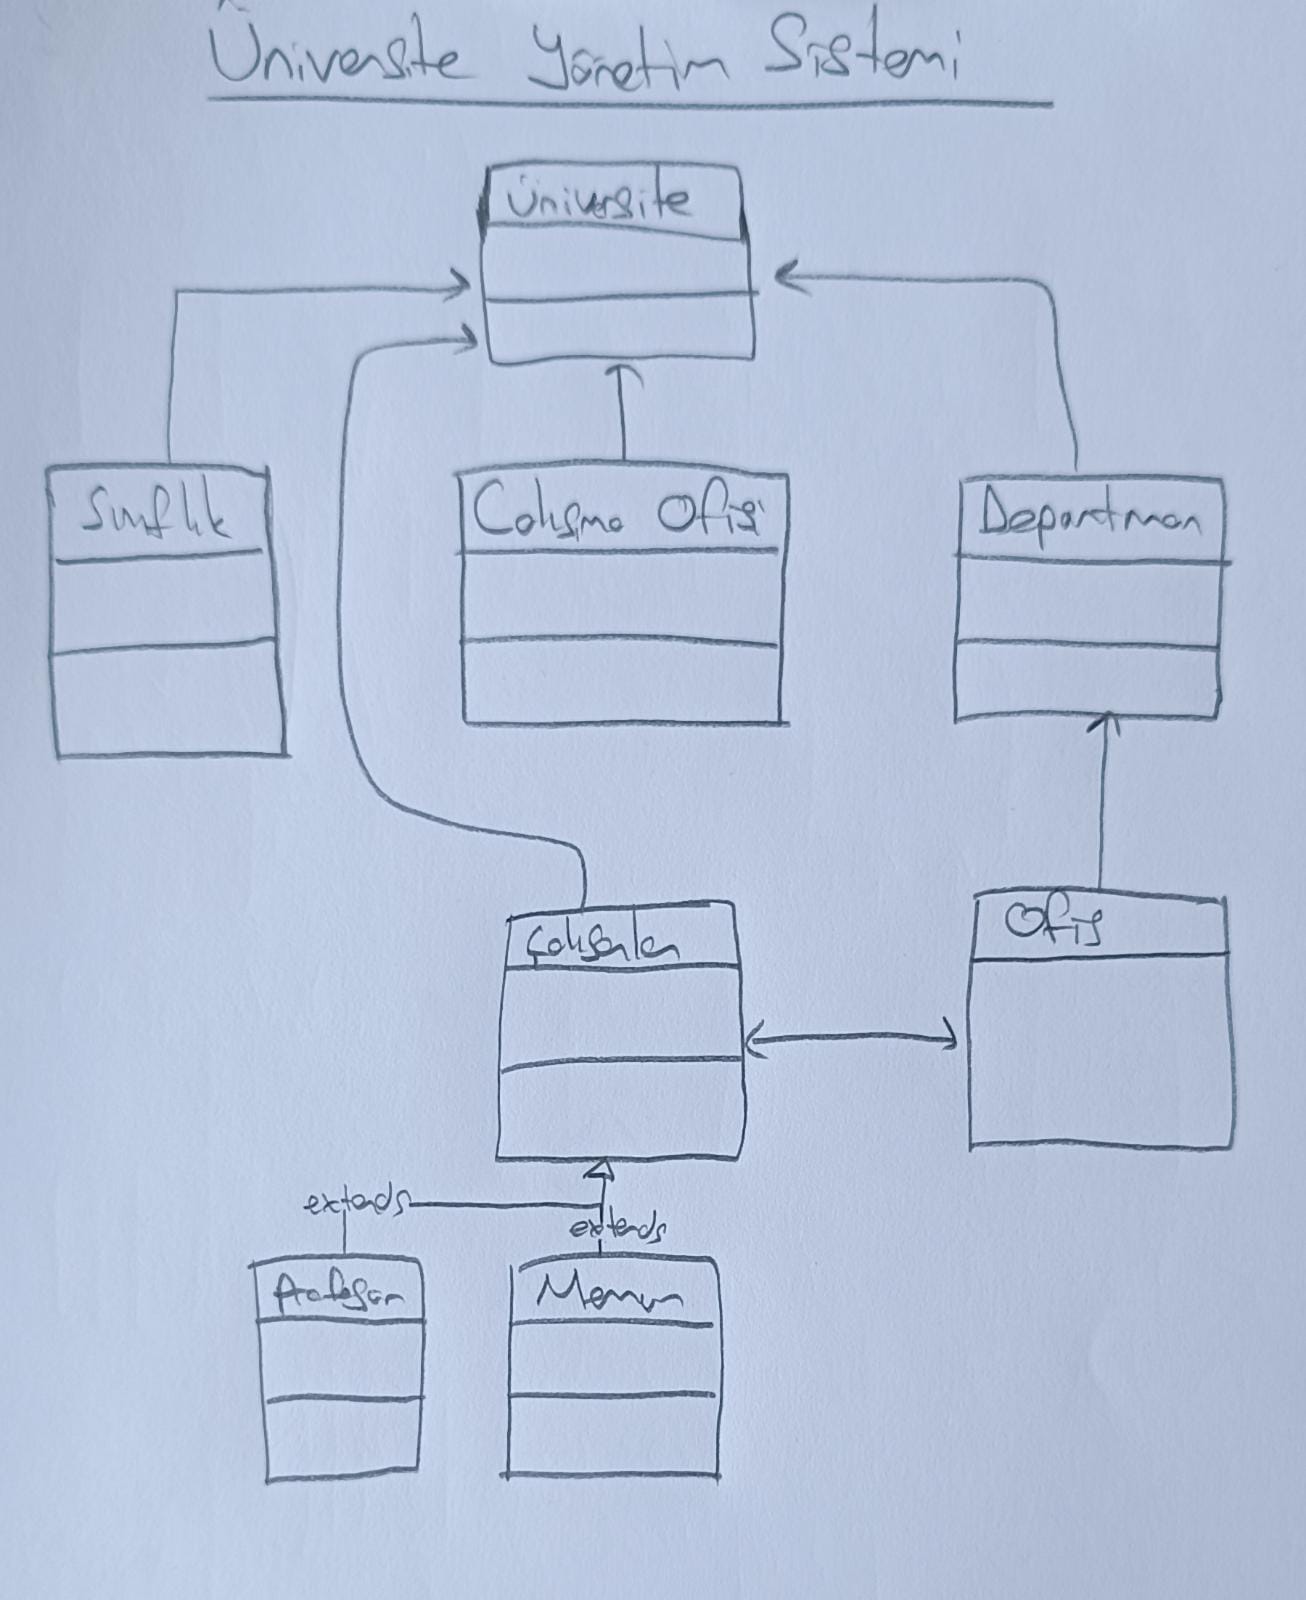 Üniversite Yönetim Sistemi
Üniversite
Sınıflık
Çalışma Ofisi
Departman
Çalışanlar
Ofis
extends
extends
Profesör
Memur